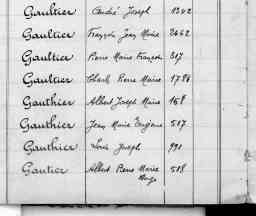 Gaultier André Joseph 1342
Gaultier François Jean Marie 2462
Gaultier Pierre Marie François 317
Gaultier Charles Pierre Marie 1786
Gauthier Albert Joseph Marie 168
Gauthier Jean Marie Eugène 507
Gauthier Louis Joseph 991
Gautier Albert Pierre Marie 508